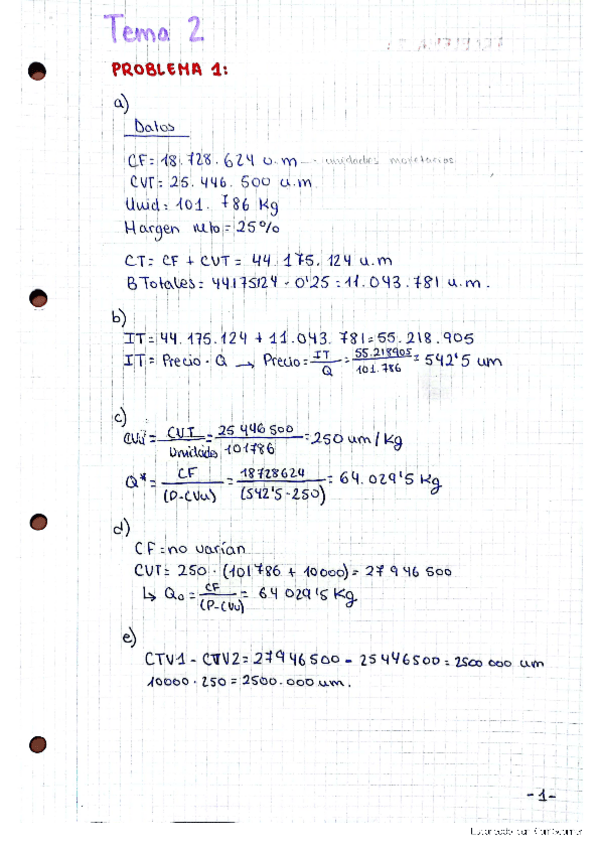 Tema 2
PROBLEMA 1:
a)
Datos
CF = 18.728.624 u.m → unidades monetarias
CVT = 25.446.500 u.m
Unid = 101.786 Kg
Margen neto = 25%
CT = CF + CVT = 44.175.124 u.m
B Totales = 44175124 · 0'25 = 11.043.781 u.m.
b)
IT = 44.175.124 + 11.043.781 = 55.218.905
IT = Precio · Q → Precio = IT / Q = 55.218905 / 101.786 = 542'5 um
c)
CVu = CVT / Unidades = 25446500 / 101786 = 250 um/Kg
Q* = CF / (P-CVu) = 18728624 / (542'5-250) = 64.029'5 Kg
d)
CF = no varían
CVT = 250 · (101786 + 10000) = 27946500
↳ Q₀ = CF / (P-CVu) = 64029'5 Kg
e)
CTV1 - CTV2 = 27946500 - 25446500 = 2500000 um
10000 · 250 = 2500.000 um.
-1-
Escaneado con CamScanner